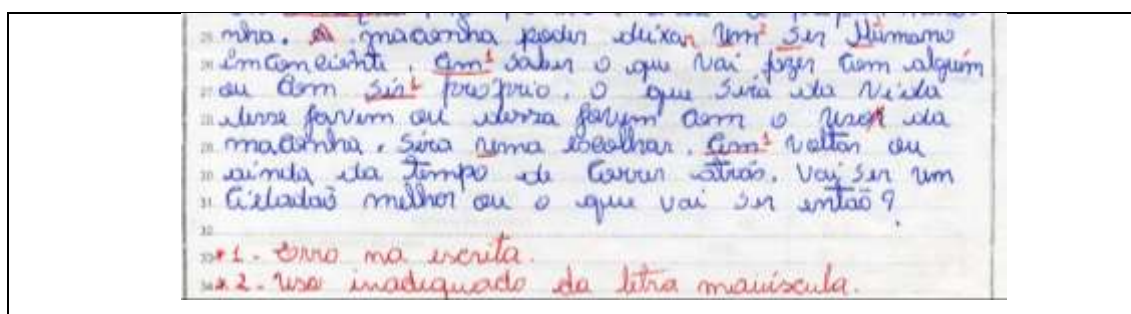 nha. A maconha poder deixar um² Ser Humano
inconciente, Cim¹ saber o que vai fazer com alguém
ou com sir¹ proprio. O que Sirá da Vida
desse jovem ou dessa jovem com o uso da
maconha. Sira uma escolhar. Cim¹ voltar ou
ainda da tempo de Correr atrás. Vai ser um
Cidadaõ melhor ou o que vai ser entaõ?
*1 - Erro na escrita.
*2 - Uso inadequado da letra maiúscula.